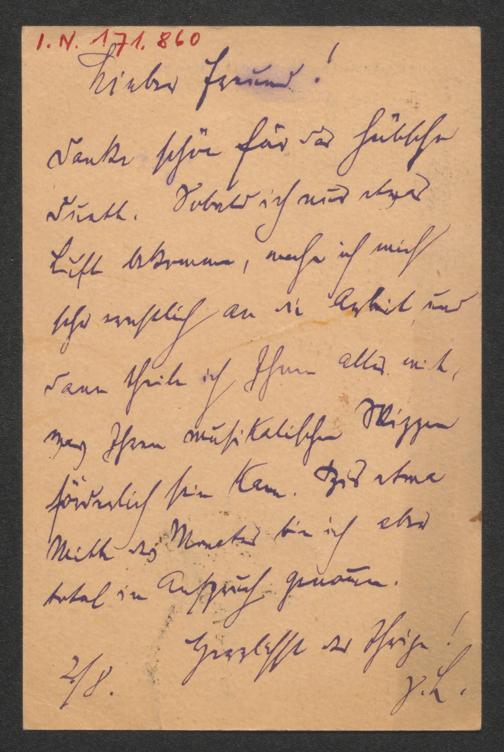 I.N. 171.860
Lieber Freund!
Danke schön für das hübsche
Duett. Sobald ich nur etwas
Luft bekomme, mache ich mich
sehr ernstlich an die Arbeit und
dann theile ich Ihnen alles mit,
was Ihren musikalischen Skizzen
förderlich sein kann. Bis etwa
Mitte des Monates bin ich aber
total in Anspruch genommen.
Herzlichst der Ihrige!
2/8.